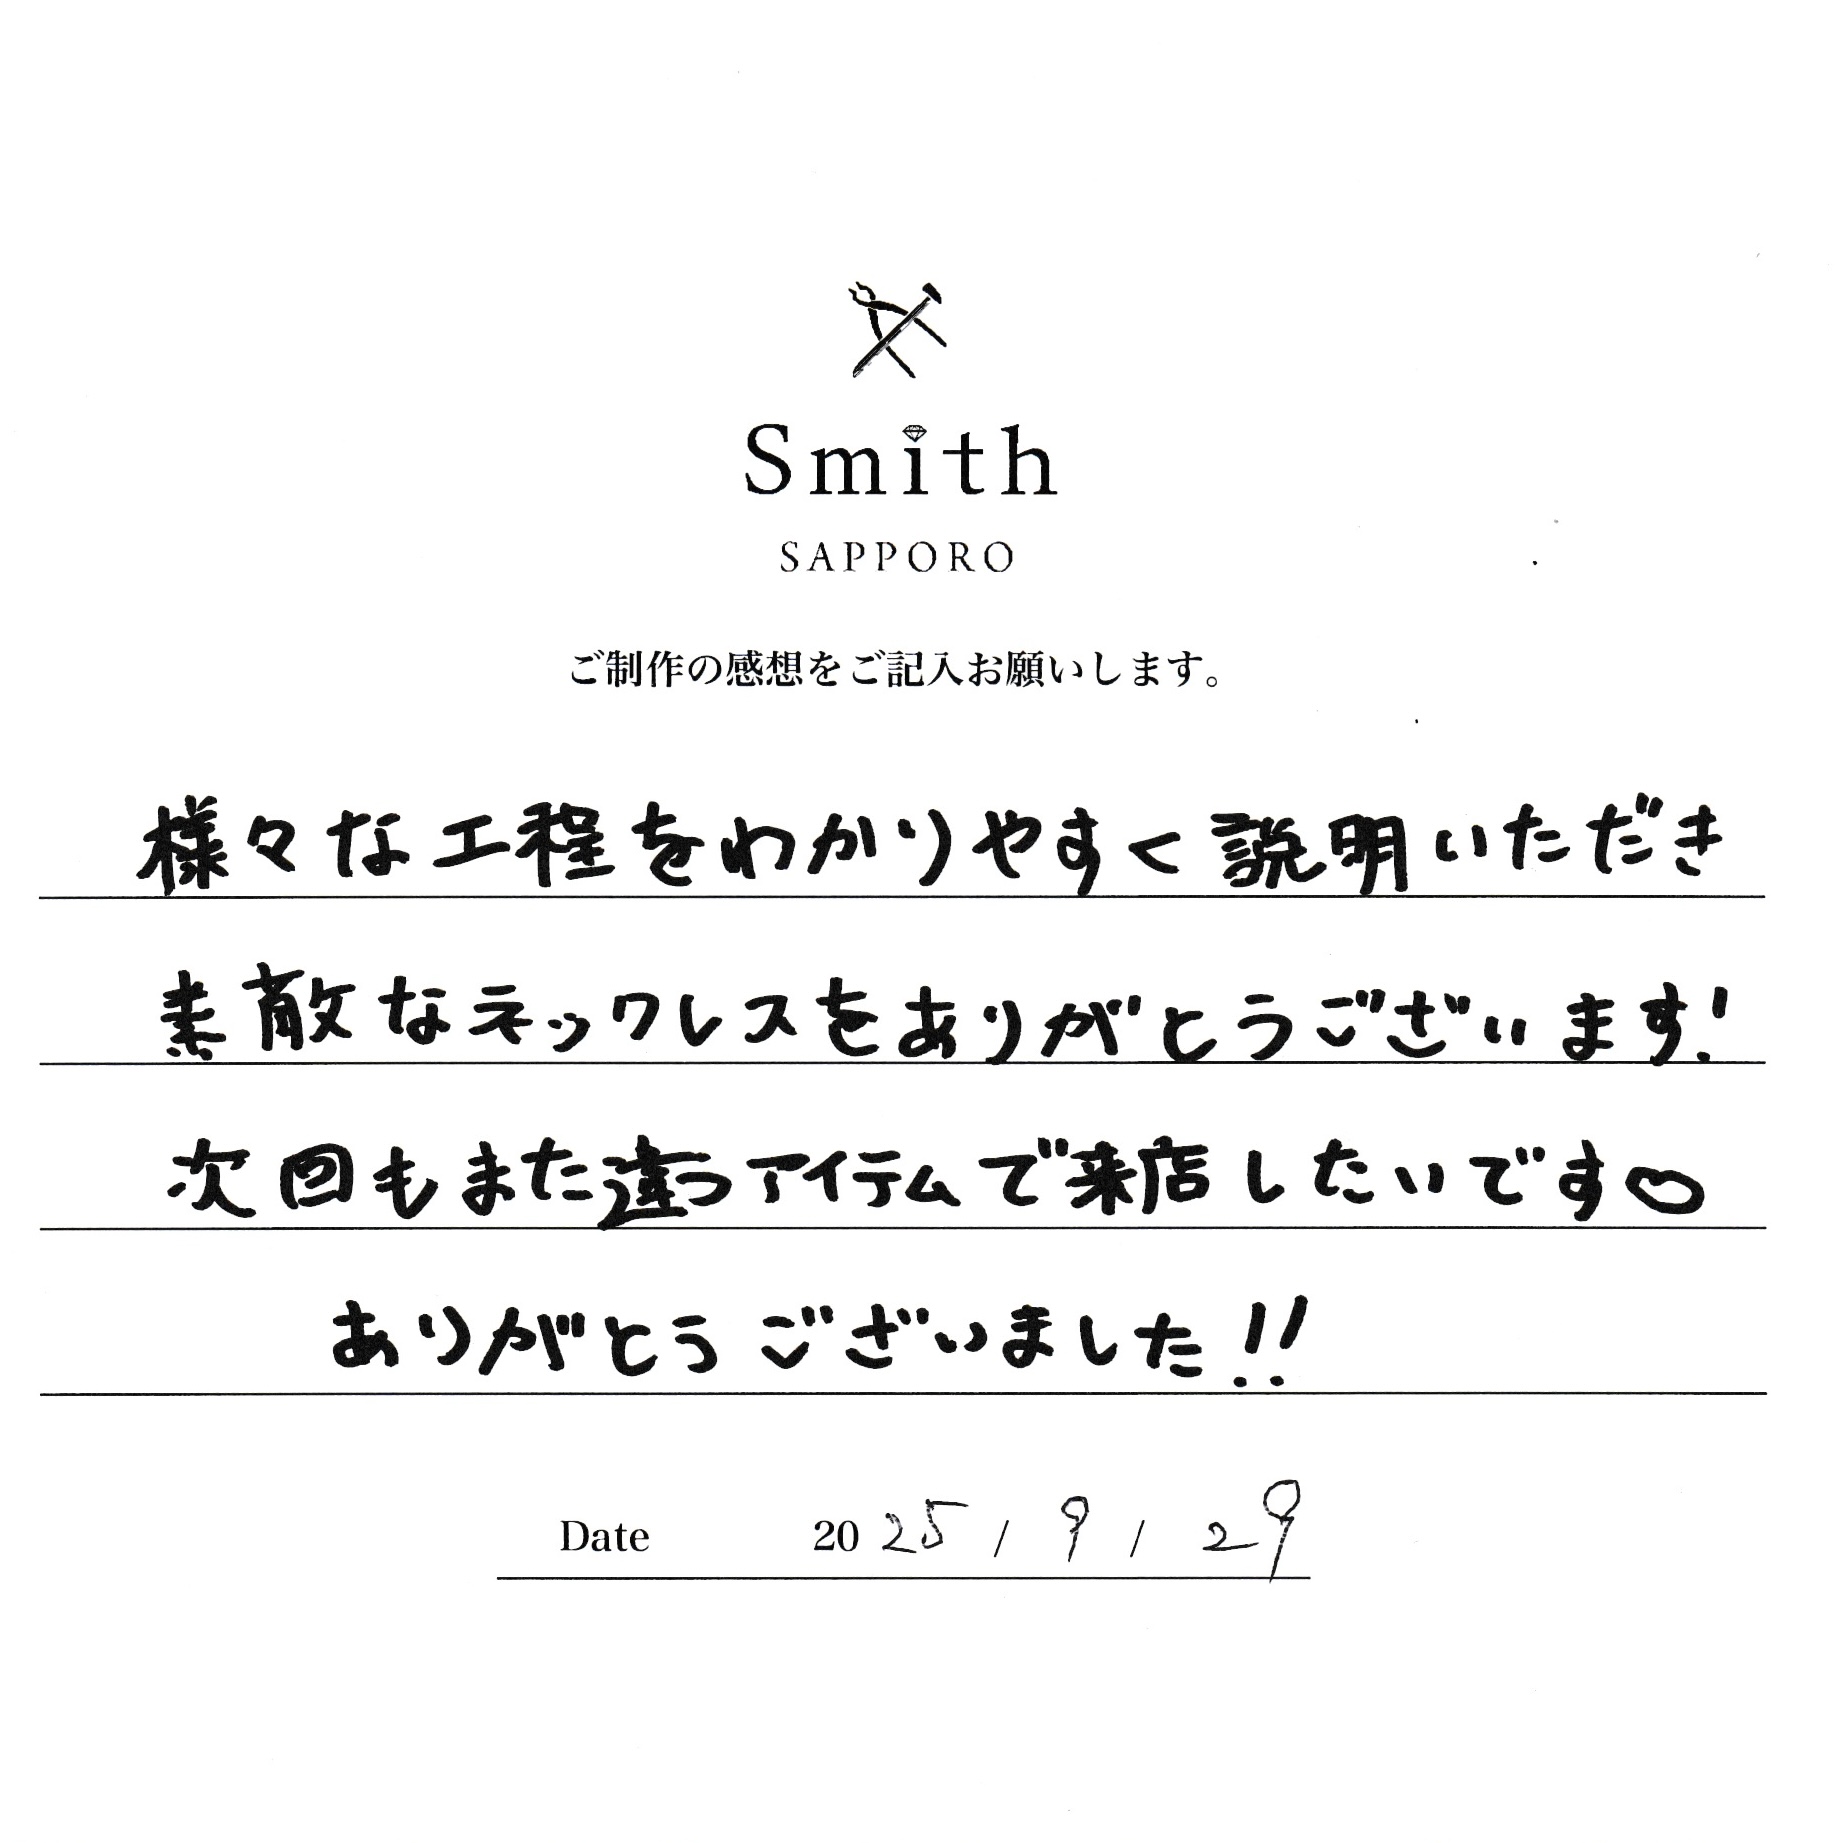 Smith
SAPPORO
ご制作の感想をご記入お願いします。
様々な工程をわかりやすく説明いただき
素敵なネックレスをありがとうございます!
次回もまた違うアイテムで来店したいです♡
ありがとうございました!!
Date 2025/9/29